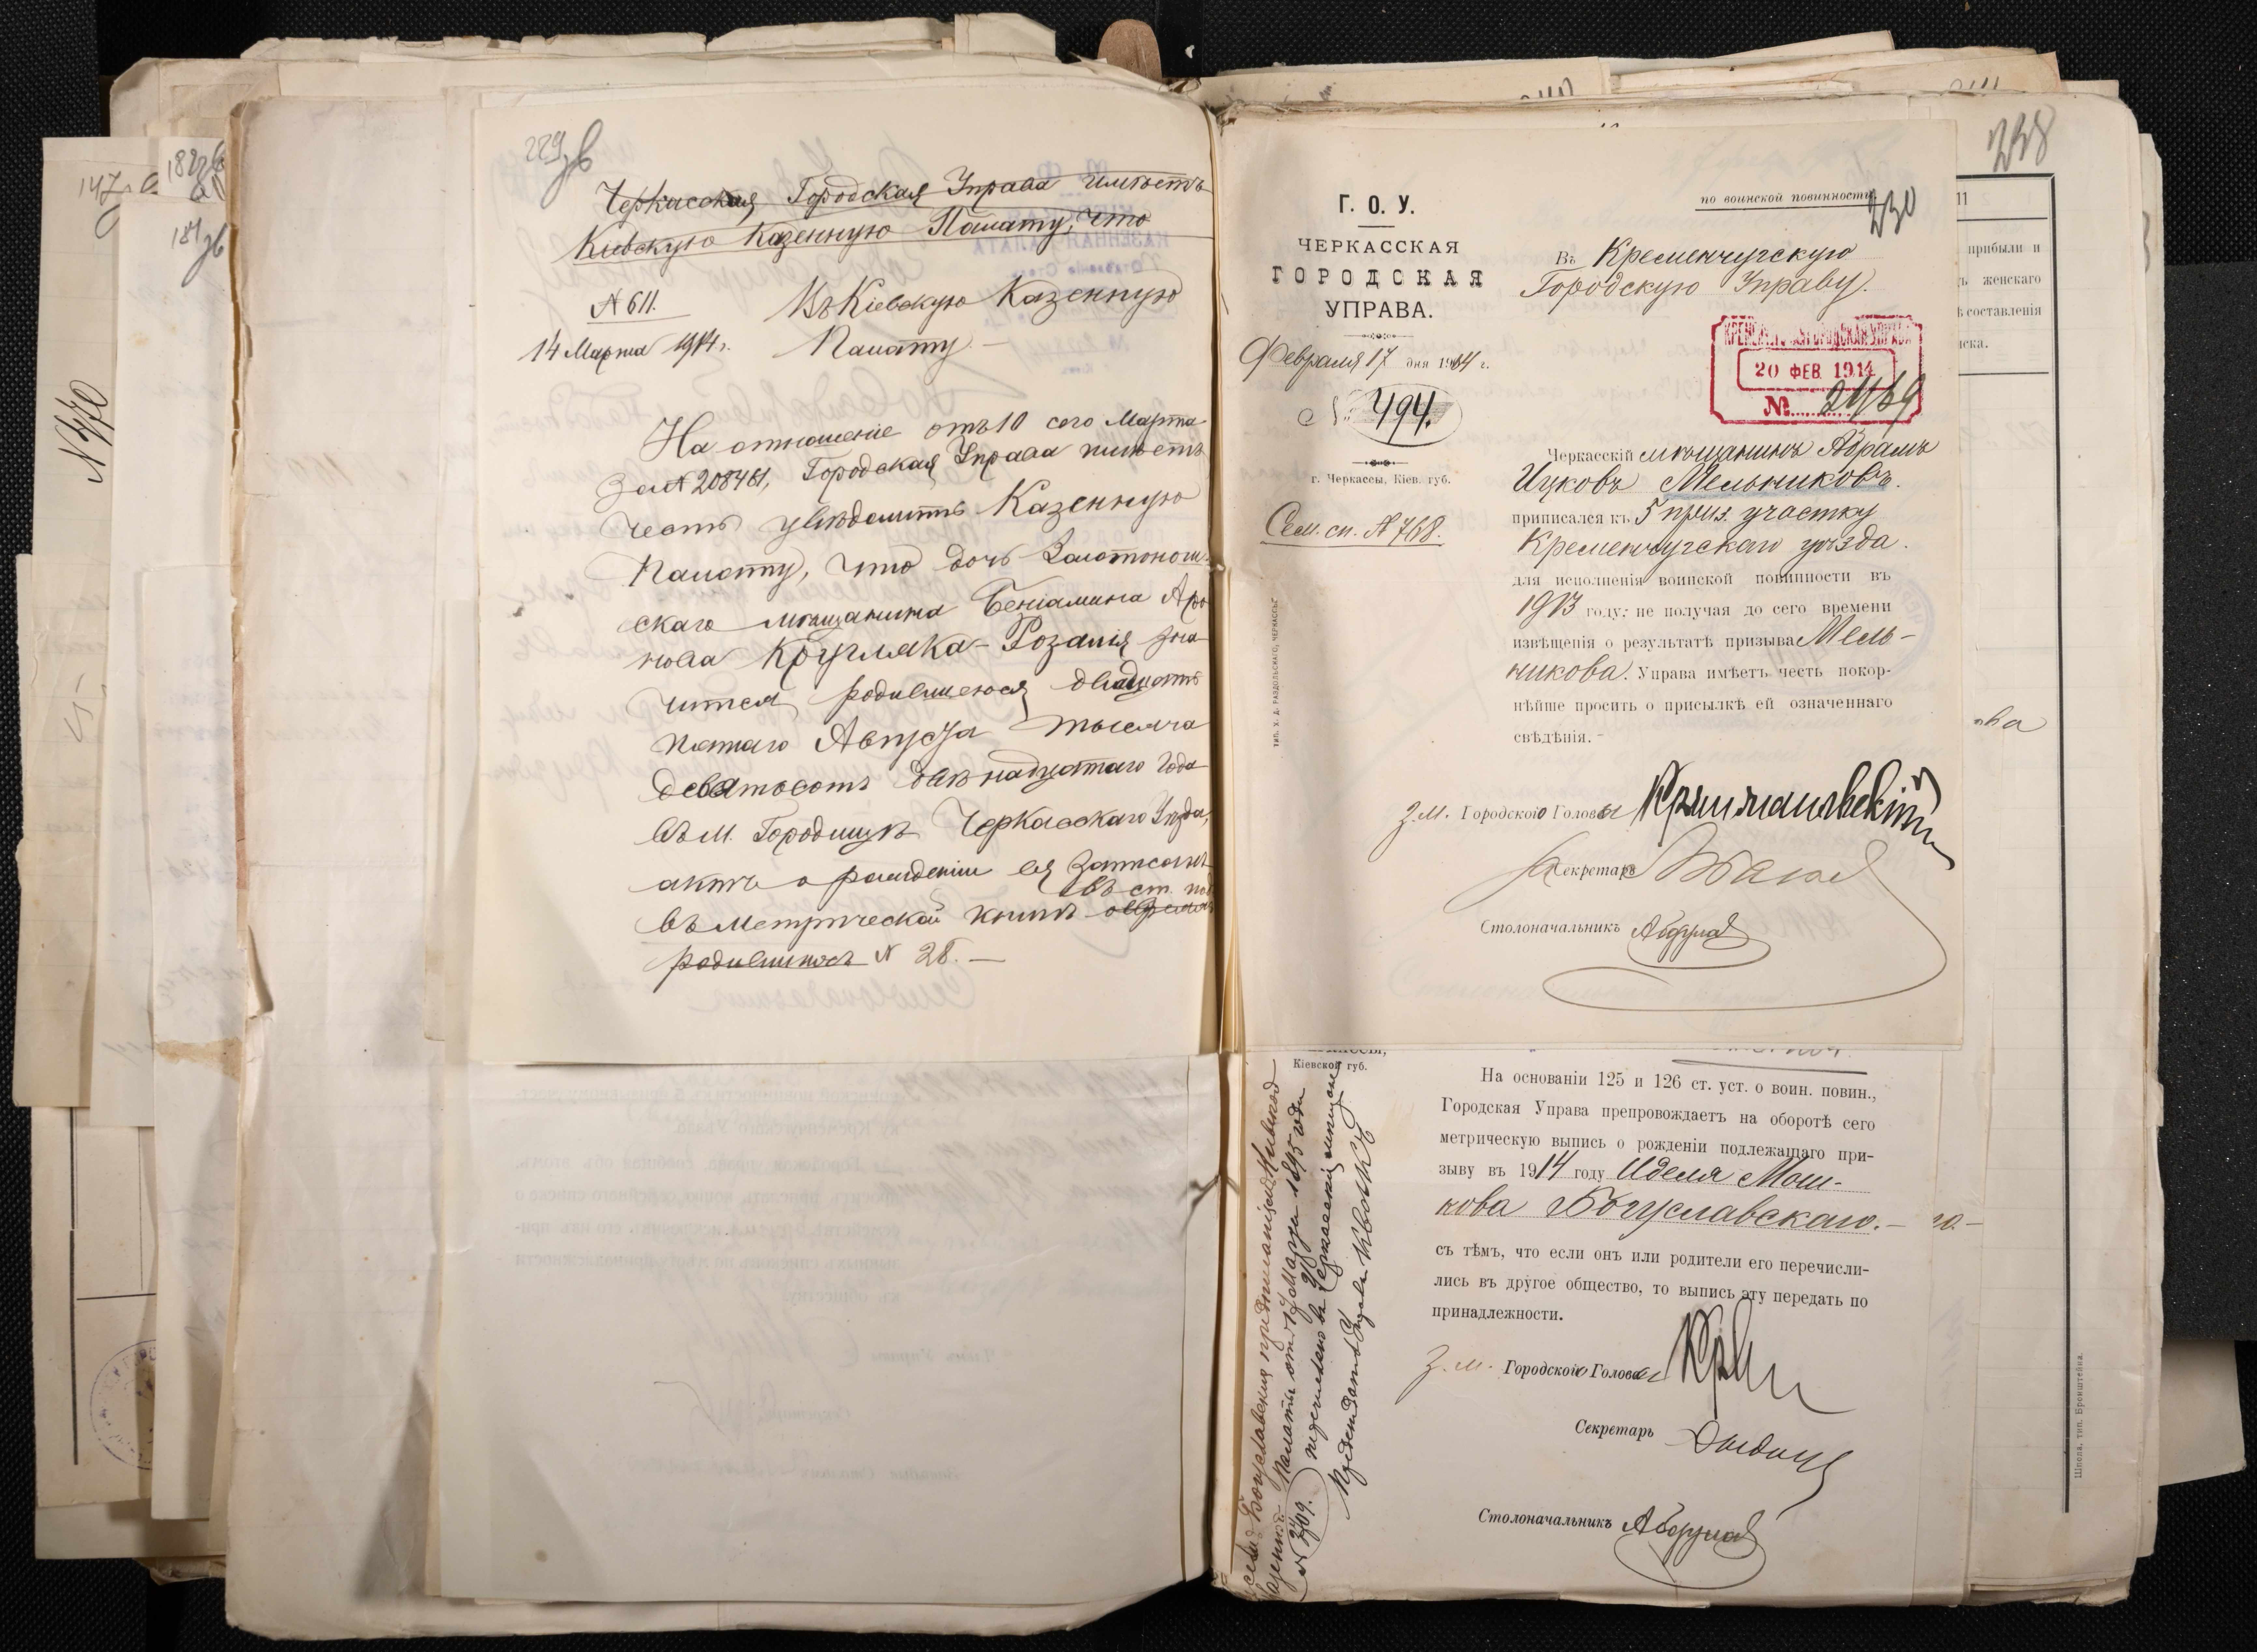 229 зв
Черкасская Городская Управа имѣетъ
Кіевскую Казенную Палату, что
№ 611.
14 Марта 1914 г.
Въ Кіевскую Казенную
Палату.
На отношеніе отъ 10 сего Марта
за № 208461, Городская Управа имѣетъ
честь увѣдомить Казенную
Палату, что дочь Золотонош-
скаго мѣщанина Беніамина Аро
нова Кругляка - Розалія зна
чится родившеюся двадцать
пятаго Августа тысяча
девятьсотъ двѣнадцатаго года
въ м. Городищѣ Черкасскаго Уѣзда,
актъ о рожденіи ея записанъ
въ ст. под
въ метрической книгѣ
родившихся № 28. —
147
182 зв
184 зв
№ 370
238
11
прибыли и
женскаго
составленія
иска.
230
по воинской повинности
Г. О. У.
ЧЕРКАССКАЯ
ГОРОДСКАЯ
УПРАВА.
Февраля 17 дня 1914 г.
№ 494.
г. Черкассы, Кіев. губ.
Сем. сп. № 768.
тип. Х. Д. РАЗДОЛЬСКАГО, ЧЕРКАССЫ
Въ Кременчугскую
Городскую Управу.
КРЕМЕНЧУГСКАЯ ГОРОДСКАЯ УПРАВА
20 ФЕВ. 1914
№ 2469
Черкасскій мѣщанинъ Абрамъ
Ицковъ Мельниковъ.
приписался къ 5 приз. участку
Кременчугскаго уѣзда.
для исполненія воинской повинности въ
1913 году: не получая до сего времени
извѣщенія о результатѣ призыва Мель-
никова. Управа имѣетъ честь покор-
нѣйше просить о присылкѣ ей означеннаго
свѣдѣнія. -
З.м. Городского Головы
Секретарь
Столоначальникъ
Кіевской губ.
На основаніи 125 и 126 ст. уст. о воин. повин.,
Городская Управа препровождаетъ на оборотѣ сего
метрическую выпись о рожденіи подлежащаго при-
зыву въ 1914 году Иделя Мош-
кова Богуславскаго. —
съ тѣмъ, что если онъ или родители его перечисли-
лись въ другое общество, то выпись эту передать по
принадлежности.
З.м. Городского Головы
Секретарь
Столоначальникъ
Богуславскія предписаніемъ Кіевской
Казенной Палаты отъ 17 Марта 1895 года
№ 3709. перечислено въ Черкасскіе мѣщане
Шпола, тип. Бронштейна.